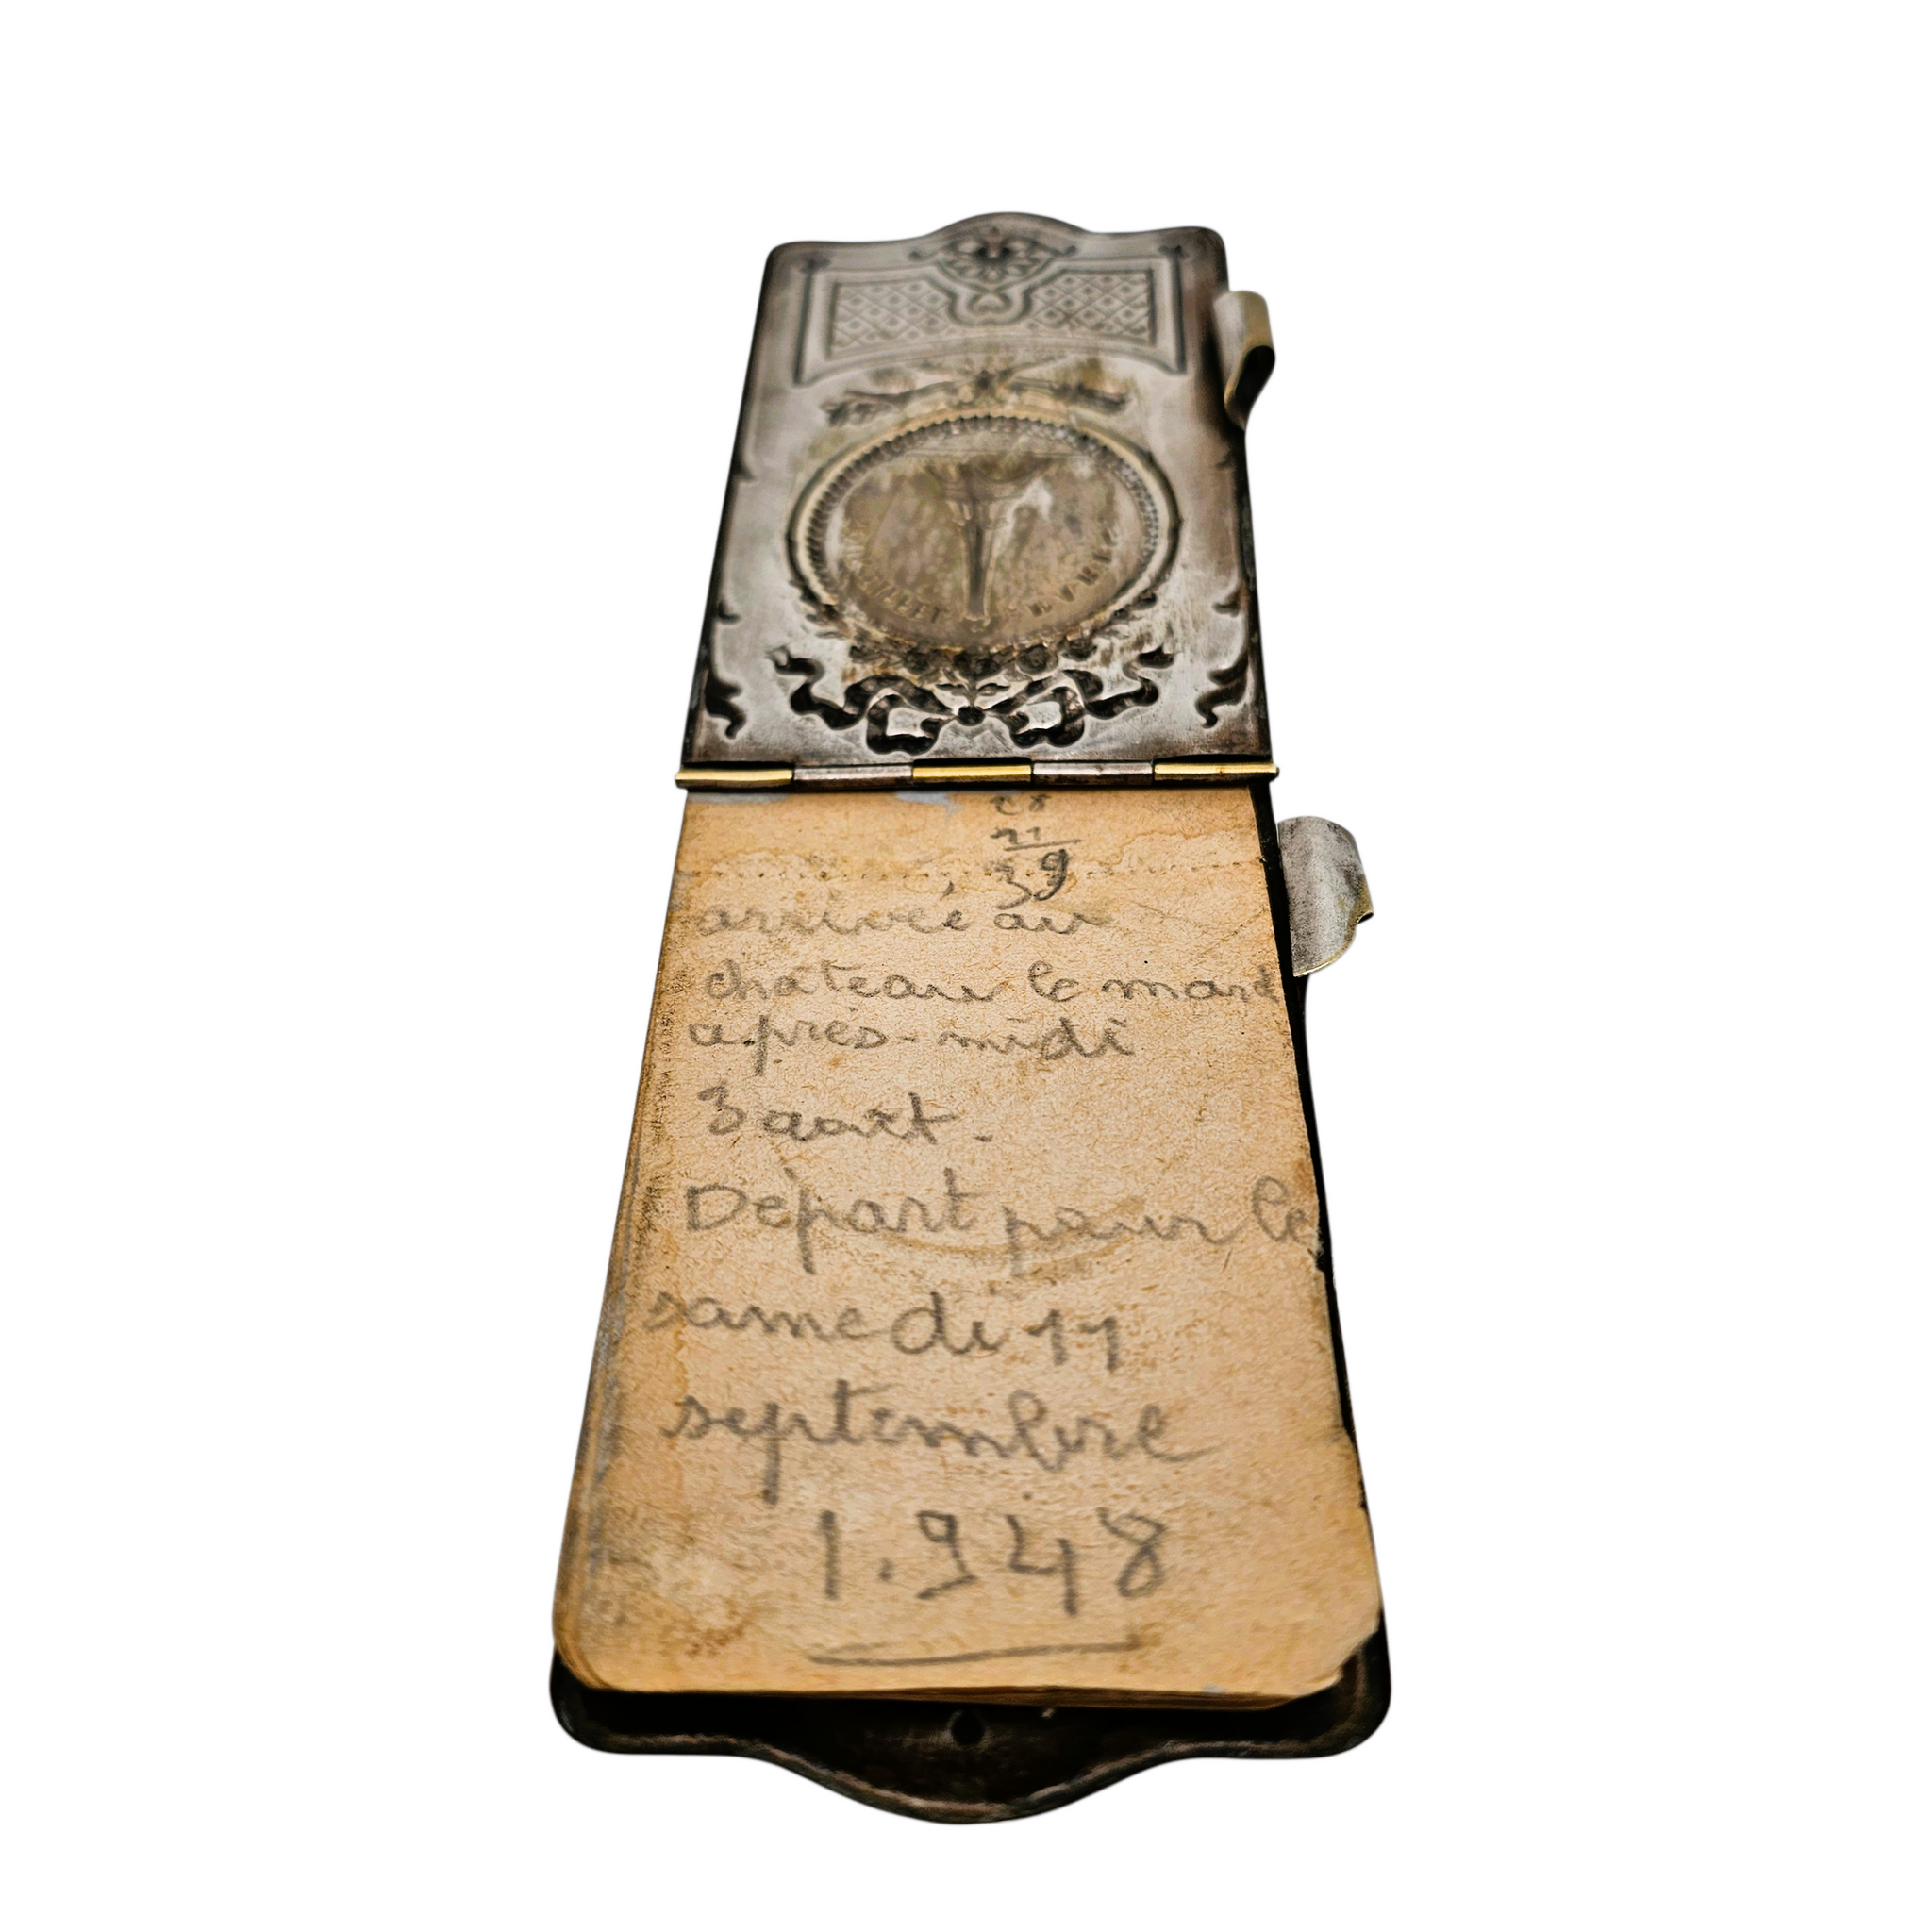 39
arrivée au
château le mard
après-midi
3 aout.
Départ pour le
samedi 11
septembre
1.948